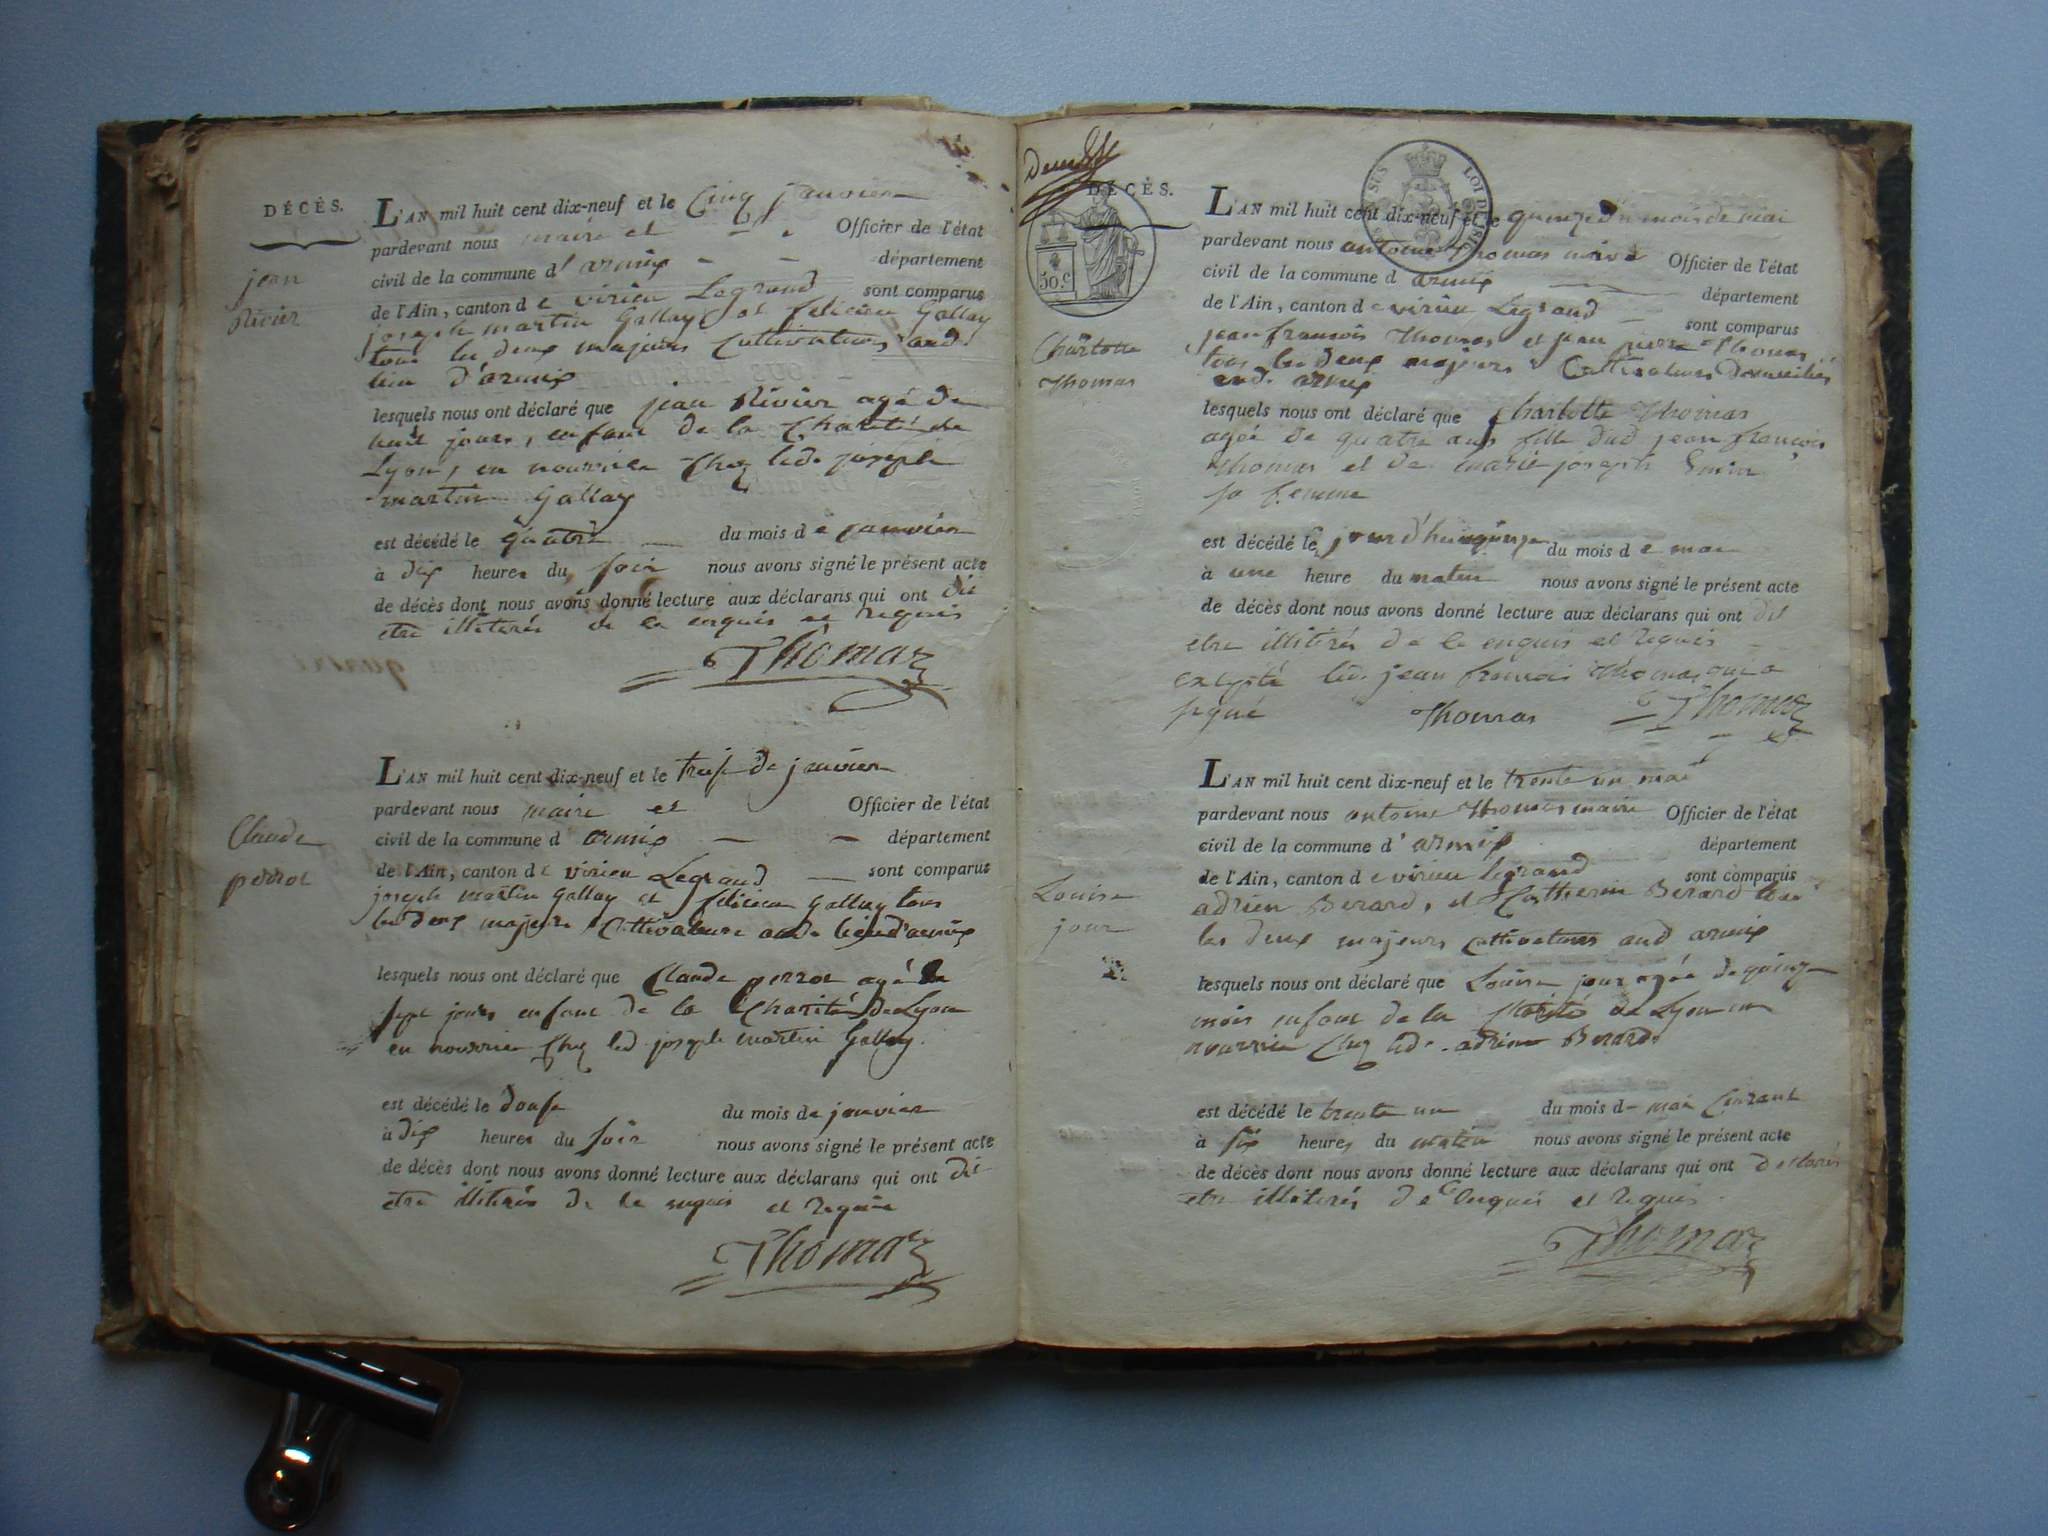 DÉCÈS.
jean
Rivier
L'AN mil huit cent dix-neuf et le Cinq janvier
pardevant nous maire et Officier de l'état
civil de la commune d'armix département
de l'Ain, canton de virieu Legrand sont comparus
joseph martin Gallay et felicien Gallay
tous les deux majeurs Cultivateurs aud
lieu d'armix
lesquels nous ont déclaré que jean Rivier agé de
huit jours, enfant de la Charité de
Lyon, en nourrice Chez led. joseph
martin Gallay
est décédé le quatre du mois de janvier
à dix heures du soir nous avons signé le présent acte
de décès dont nous avons donné lecture aux déclarans qui ont dit
etre illiterés de ce enquis et requis
Thomas
Claude
perrot
L'AN mil huit cent dix-neuf et le treise de janvier
pardevant nous maire et Officier de l'état
civil de la commune d armix département
de l'Ain, canton de virieu Legrand sont comparus
joseph martin Gallay et felicien Gallay tous
les deux majeurs Cultivateurs aud. lieu d'armix
lesquels nous ont déclaré que Claude perrot agé de
sept jours enfant de la Charité de Lyon
en nourrice Chez led joseph martin Gallay.
est décédé le douse du mois de janvier
à dix heures du soir nous avons signé le présent acte
de décès dont nous avons donné lecture aux déclarans qui ont dit
etre illiterés de ce enquis et requis
Thomas
DÉCÈS.
50.c
LOI DU
Charlotte
Thomas
L'AN mil huit cent dix-neuf et le quinze du mois de mai
pardevant nous antoine Thomas maire Officier de l'état
civil de la commune d armix département
de l'Ain, canton de virieu Legrand sont comparus
jean francois Thomas et jean pierre Thomas
tous les deux majeurs Cultivateurs domiciliés
aud. armix
lesquels nous ont déclaré que Charlotte Thomas
agée de quatre ans fille dud jean francois
Thomas et de marie joseph
sa femme
est décédé le jour d'hui quinze du mois de mai
à une heure du matin nous avons signé le présent acte
de décès dont nous avons donné lecture aux déclarans qui ont dit
etre illitirés de ce enquis et requis
excepté led. jean francois Thomas qui a
signé Thomas Thomas
Louise
jour
L'AN mil huit cent dix-neuf et le trente un mai
pardevant nous antoine Thomas maire Officier de l'état
civil de la commune d'armix département
de l'Ain, canton de virieu legrand sont comparus
adrien Berard, et Catherin Berard tous
les deux majeurs cultivateurs aud armix
lesquels nous ont déclaré que Louise jour agée de quinze
mois enfant de la Charité de Lyon en
nourrice Chez led. adrien Berard.
est décédé le trente un du mois de mai Courant
à six heures du matin nous avons signé le présent acte
de décès dont nous avons donné lecture aux déclarans qui ont declarés
etre illiterés de ce enquis et requis
Thomas